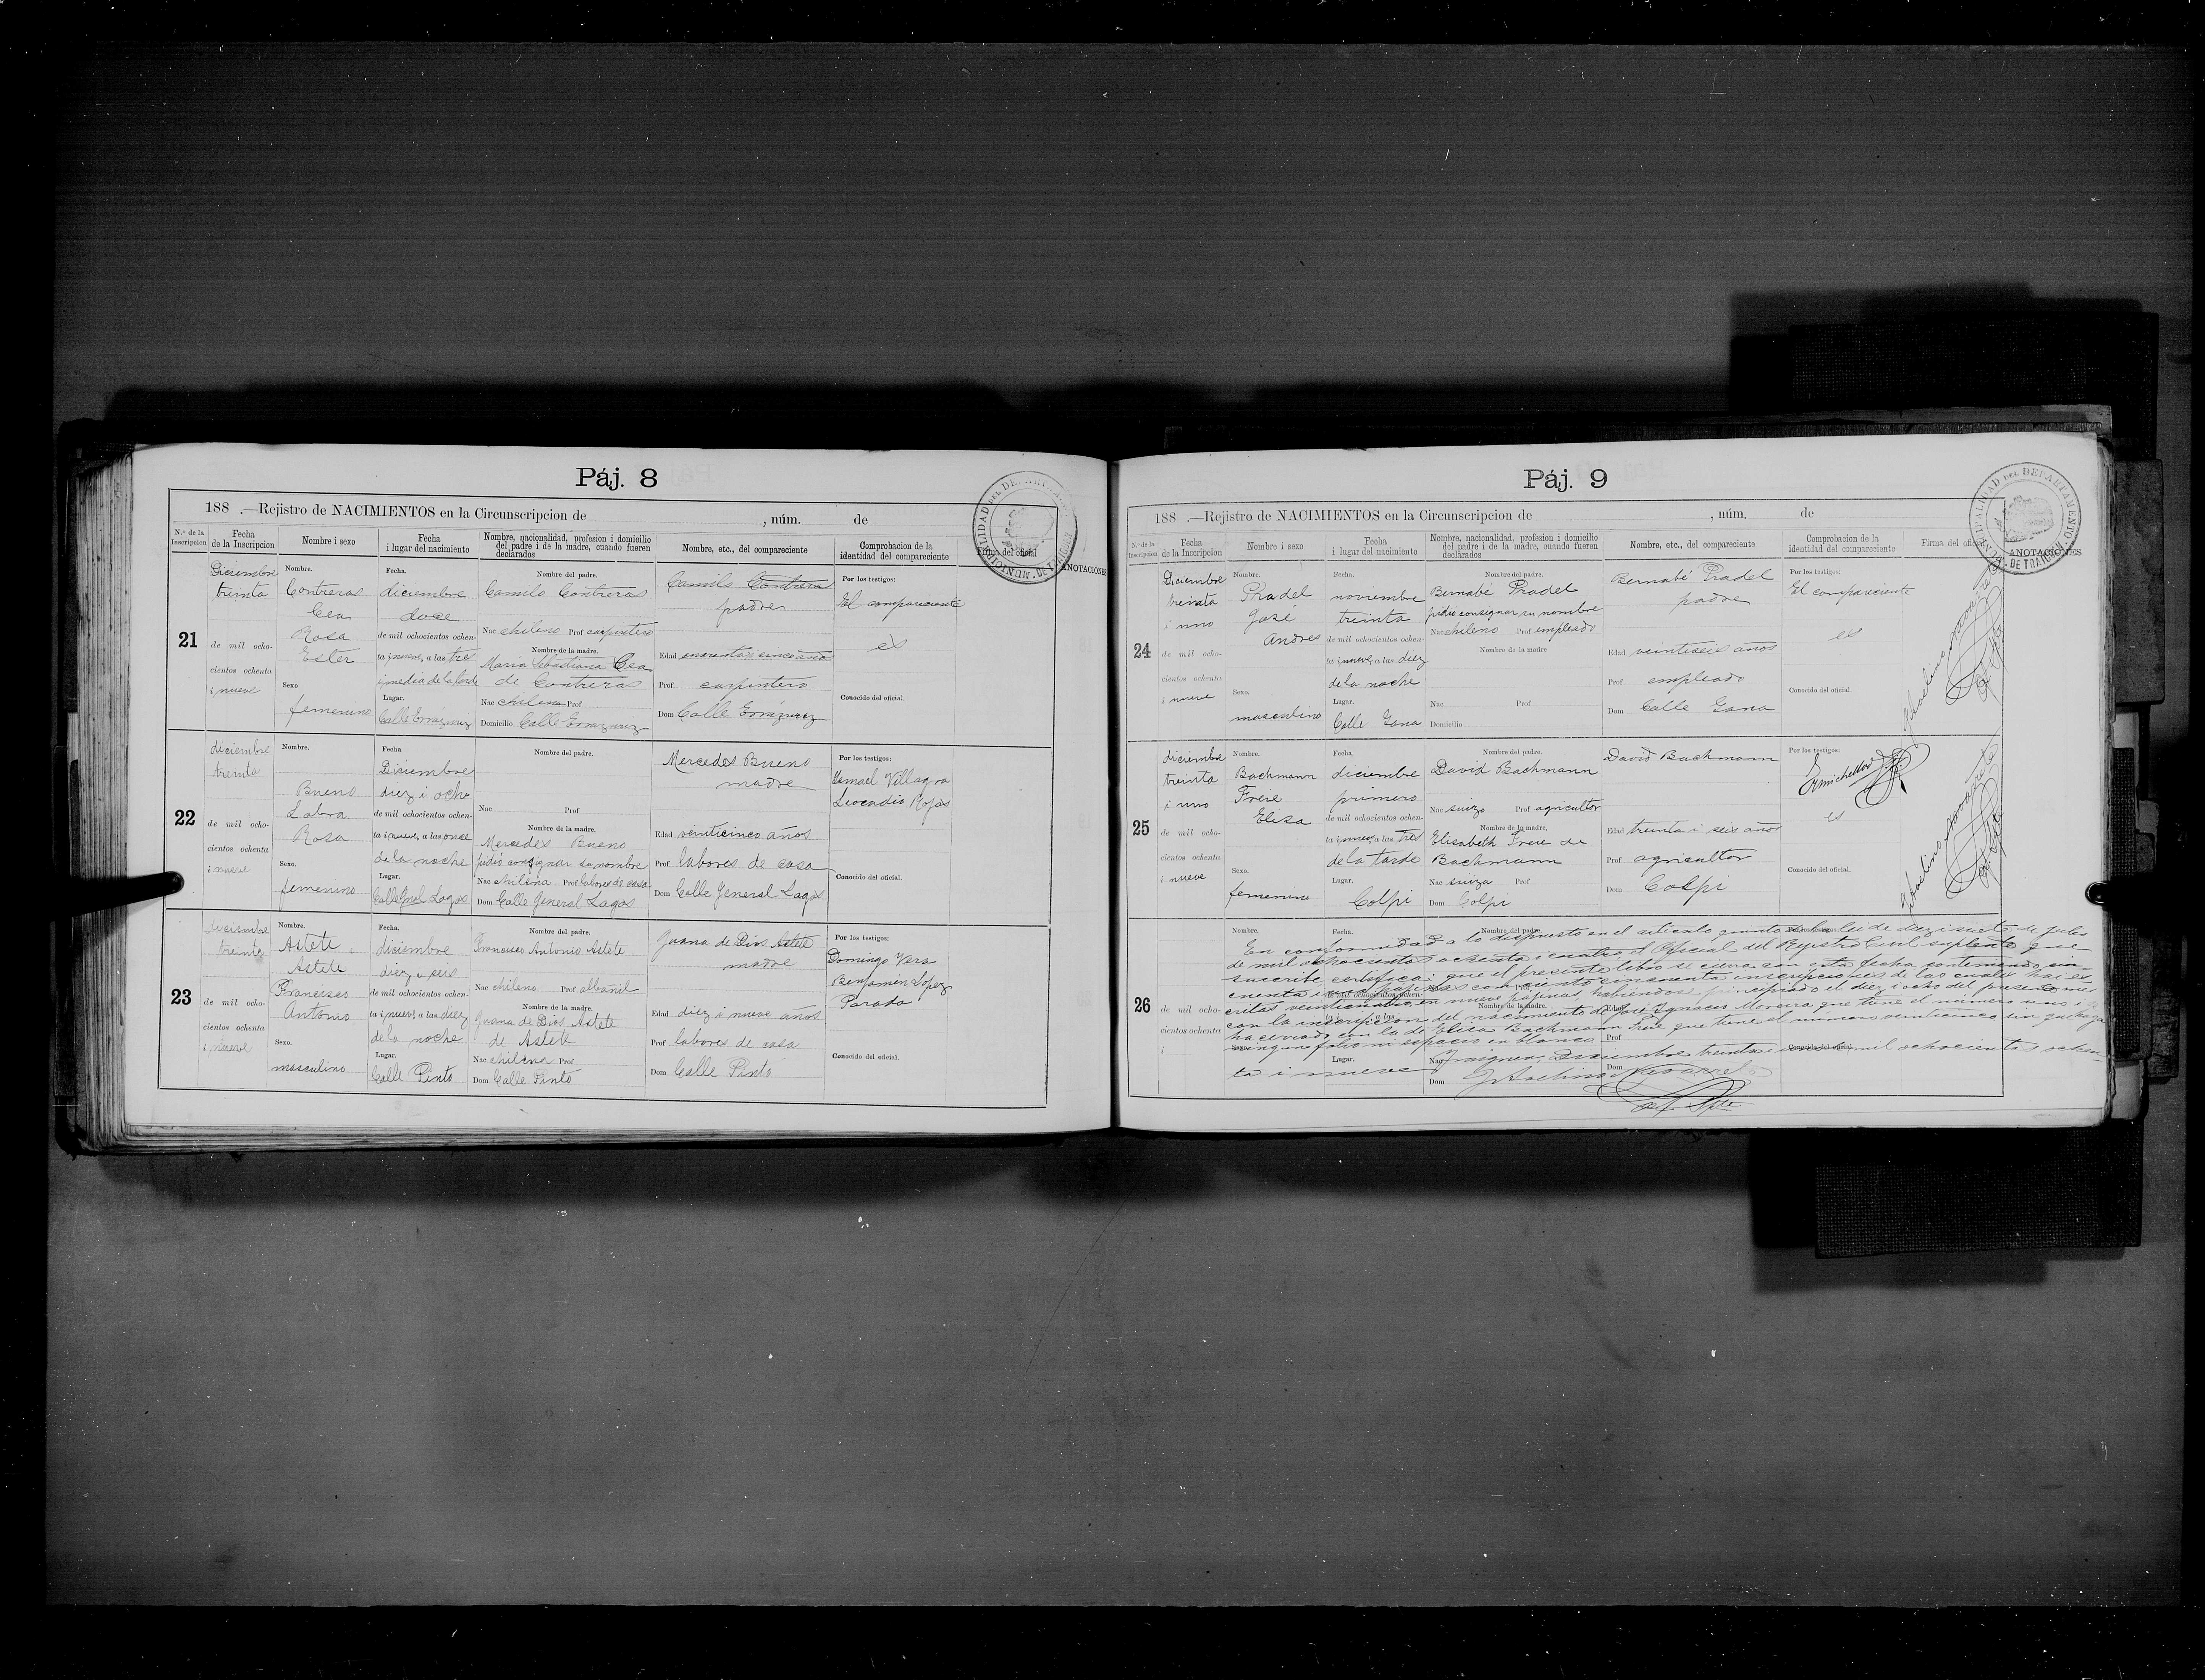 Páj. 8
188 .—Rejistro de NACIMIENTOS en la Circunscripcion de , núm. de
N.º de la Inscripcion
Fecha de la Inscripcion
Nombre i sexo
Fecha i lugar del nacimiento
Nombre, nacionalidad, profesion i domicilio del padre i de la madre, cuando fueren declarados
Nombre, etc., del compareciente
Comprobacion de la identidad del compareciente
Firma del oficial
ANOTACIONES
MUNICIPALIDAD DEL DEPARTAMENTO DE TRAIGUEN
21
Diciembre
treinta
de mil ocho-
cientos ochenta
i nueve
Nombre.
Contreras
Cea
Rosa
Ester
Sexo
femenino
Fecha.
diciembre
doce
de mil ochocientos ochen-
ta i nueve, a las tres
i media de la tarde
Lugar.
Calle Errázuriz
Nombre del padre.
Camilo Contreras
Nac chileno Prof carpintero
Nombre de la madre.
Maria Sebastiana Cea
de Contreras
Nac chilena Prof
Domicilio Calle Errazuriz
Camilo Contreras
padre
Edad cuarenta i cinco años
Prof carpintero
Dom Calle Errázuriz
Por los testigos:
El compareciente
es
Conocido del oficial.
22
diciembre
treinta
de mil ocho-
cientos ochenta
i nueve
Nombre.
Bueno
Labra
Rosa
Sexo.
femenino
Fecha
Diciembre
diez i ocho
de mil ochocientos ochen-
ta i nueve, a las once
de la noche
Lugar.
Calle Gnal Lagos
Nombre del padre.
Nac Prof
Nombre de la madre.
Mercedes Bueno
pidió consignar su nombre
Nac chilena Prof labores de casa
Dom Calle General Lagos
Mercedes Bueno
madre
Edad veinticinco años
Prof labores de casa
Dom Calle General Lagos
Por los testigos:
Ismael Villagra
Leocadio Rojas
Conocido del oficial.
23
diciembre
treinta
de mil ocho-
cientos ochenta
i nueve
Nombre.
Astete
Astete
Francisco
Antonio
Sexo.
masculino
Fecha.
diciembre
diez i seis
de mil ochocientos ochen-
ta i nueve, a las diez
de la noche
Lugar.
Calle Pinto
Nombre del padre.
Francisco Antonio Astete
Nac chileno Prof albañil
Nombre de la madre.
Juana de Dios Astete
de Astete
Nac chilena Prof
Dom Calle Pinto
Juana de Dios Astete
madre
Edad diez i nueve años
Prof labores de casa
Dom Calle Pinto
Por los testigos:
Domingo Vera
Benjamin López
Parada
Conocido del oficial.
Páj. 9
188 .—Rejistro de NACIMIENTOS en la Circunscripcion de , núm. de
N.º de la Inscripcion
Fecha de la Inscripcion
Nombre i sexo
Fecha i lugar del nacimiento
Nombre, nacionalidad, profesion i domicilio del padre i de la madre, cuando fueren declarados
Nombre, etc., del compareciente
Comprobacion de la identidad del compareciente
Firma del oficial
ANOTACIONES
MUNICIPALIDAD DEL DEPARTAMENTO DE TRAIGUEN
24
Diciembre
treinta
i uno
de mil ocho-
cientos ochenta
i nueve
Nombre.
Pradel
José
Andres
Sexo.
masculino
Fecha.
noviembre
treinta
de mil ochocientos ochen-
ta i nueve, a las diez
de la noche
Lugar.
Calle Gana
Nombre del padre.
Bernabé Pradel
pidió consignar su nombre
Nac chileno Prof empleado
Nombre de la madre
Nac Prof
Domicilio
Bernabé Pradel
padre
Edad veintiseis años
Prof empleado
Dom Calle Gana
Por los testigos:
El compareciente
es
Conocido del oficial.
25
diciembre
treinta
i uno
de mil ocho-
cientos ochenta
i nueve
Nombre.
Bachmann
Freie
Elisa
Sexo.
femenino
Fecha.
diciembre
primero
de mil ochocientos ochen-
ta i nueve, a las tres
de la tarde
Lugar.
Colpi
Nombre del padre.
David Bachmann
Nac suizo Prof agricultor
Nombre de la madre.
Elisabeth Freie de
Bachmann
Nac suiza Prof
Dom Colpi
David Bachmann
Edad treinta i seis años
Prof agricultor
Dom Colpi
Por los testigos:
es
Conocido del oficial.
26
de mil ocho-
cientos ochenta
i
Nombre.
Fecha.
Nombre del padre.
En conformidad a lo dispuesto en el articulo quinto de la lei de diez i siete de julio
de mil ochocientos ochenta i cuatro, el Oficial del Rejistro Civil suplente que
suscribe certifica: que el presente libro se cierra con esta fecha conteniendo cin
cuenta i páginas con ciento cincuenta inscripciones de las cuales hai es
critas veinticinco en nueve pájinas habiéndose principiado el diez i ocho del presente mes
con la inscripcion del nacimiento de José Ignacio que tiene el número uno i
ha cerrado con la de Elisa Bachmann Freie que tiene el número veinticinco sin que haya
ninguno folio ni espacio en blanco.
Traiguen Diciembre treinta i uno de mil ochocientos ochen
ta i nueve
Lugar.
Nac
Dom